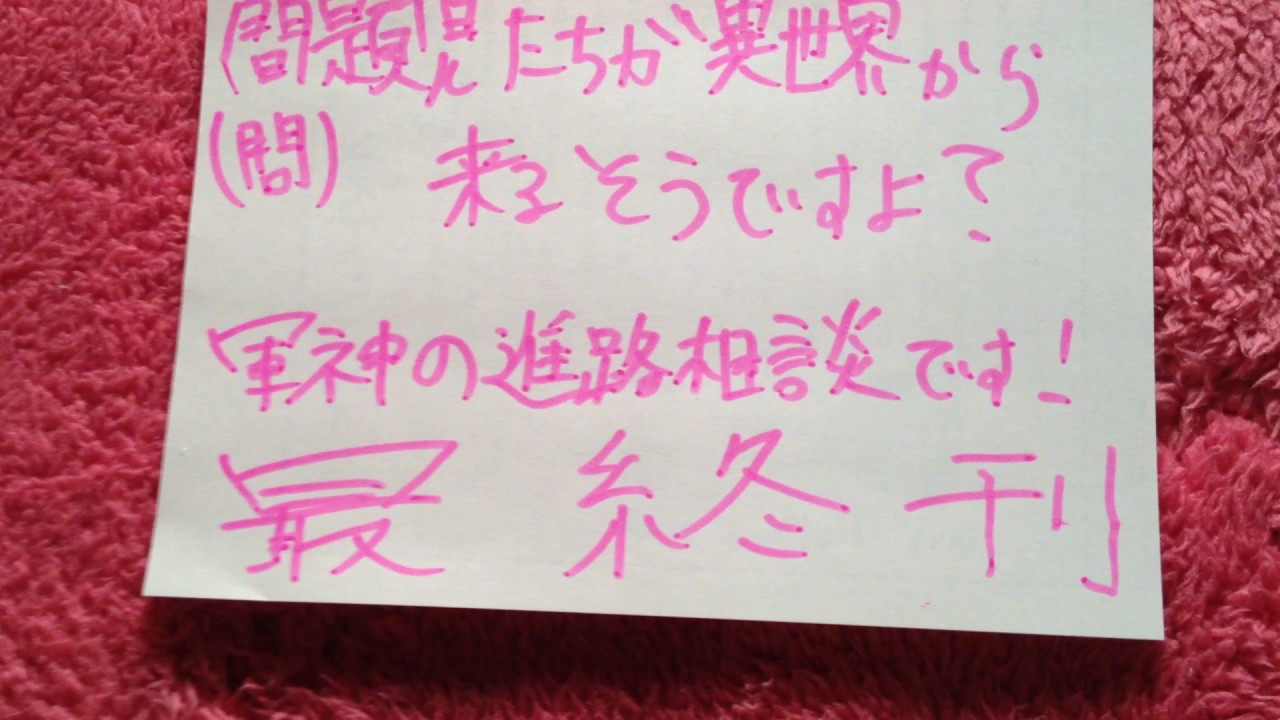 問題児たちが異世界から
(問) 来るそうですよ?
軍神の進路相談です!
最終刊